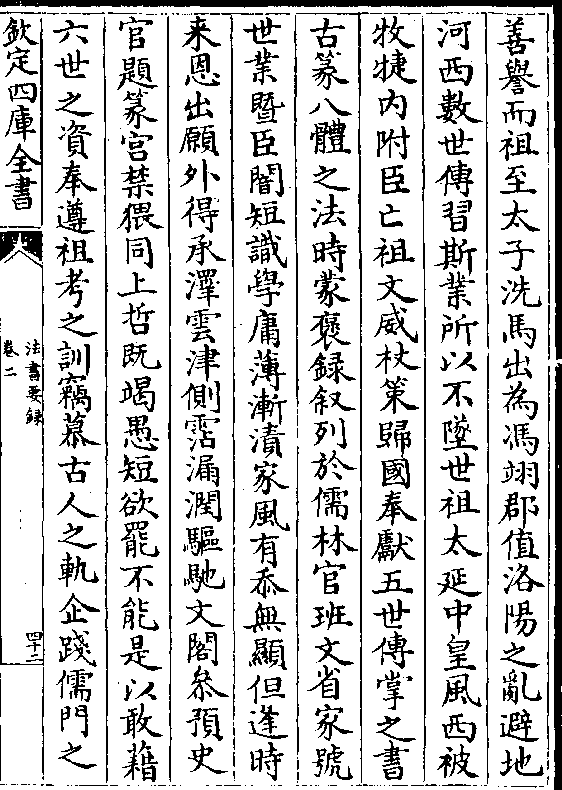 善譽而祖至太子洗馬出為馮翊郡值洛陽之亂避地
河西數世傳習斯業所以不墜世祖太延中皇風西被
牧犍內附臣亡祖文威杖策歸國奉獻五世傳掌之書
古篆八體之法時蒙褒録叙列於儒林官班文省家號
世業暨臣闇短識學庸薄漸漬家風有忝無顯但逢時
来恩出願外得承澤雲津側霑漏潤驅馳文閣叅預史
官題篆宫禁猥同上哲既竭愚短欲罷不能是以敢藉
六世之資奉遵祖考之訓竊慕古人之軌企踐儒門之
欽定四庫全書
法書要録
卷二
四十二